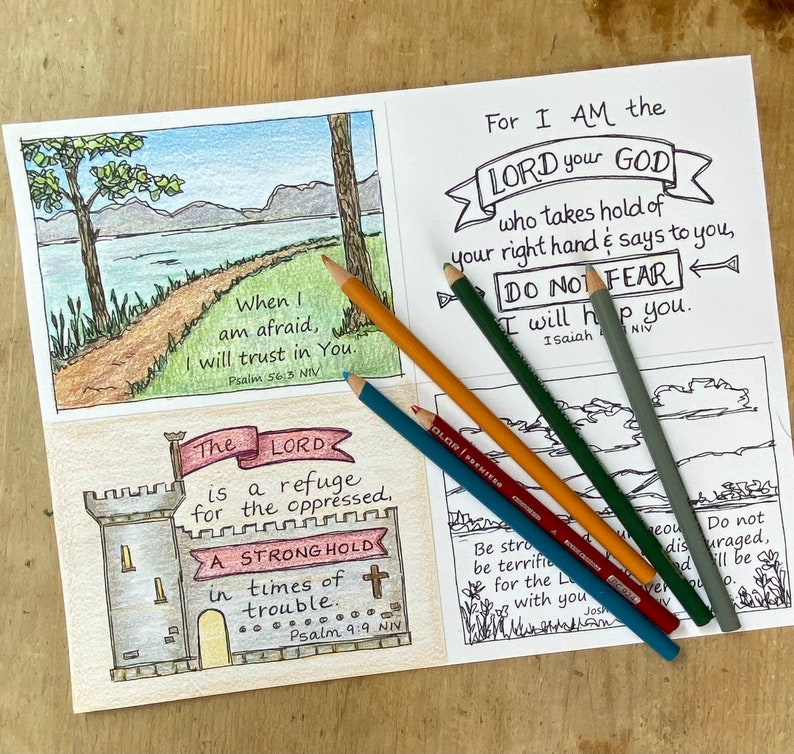 When I
am afraid,
I will trust in You.
Psalm 56:3 NIV
For I AM the
LORD your GOD
who takes hold of
your right hand & says to you,
DO NOT FEAR
I will you.
Isaiah NIV
The LORD
is a refuge
for the oppressed,
A STRONGHOLD
in times of
trouble.
Psalm 9:9 NIV
Be Do not
be terrified
for the will be
with you
PREMIER